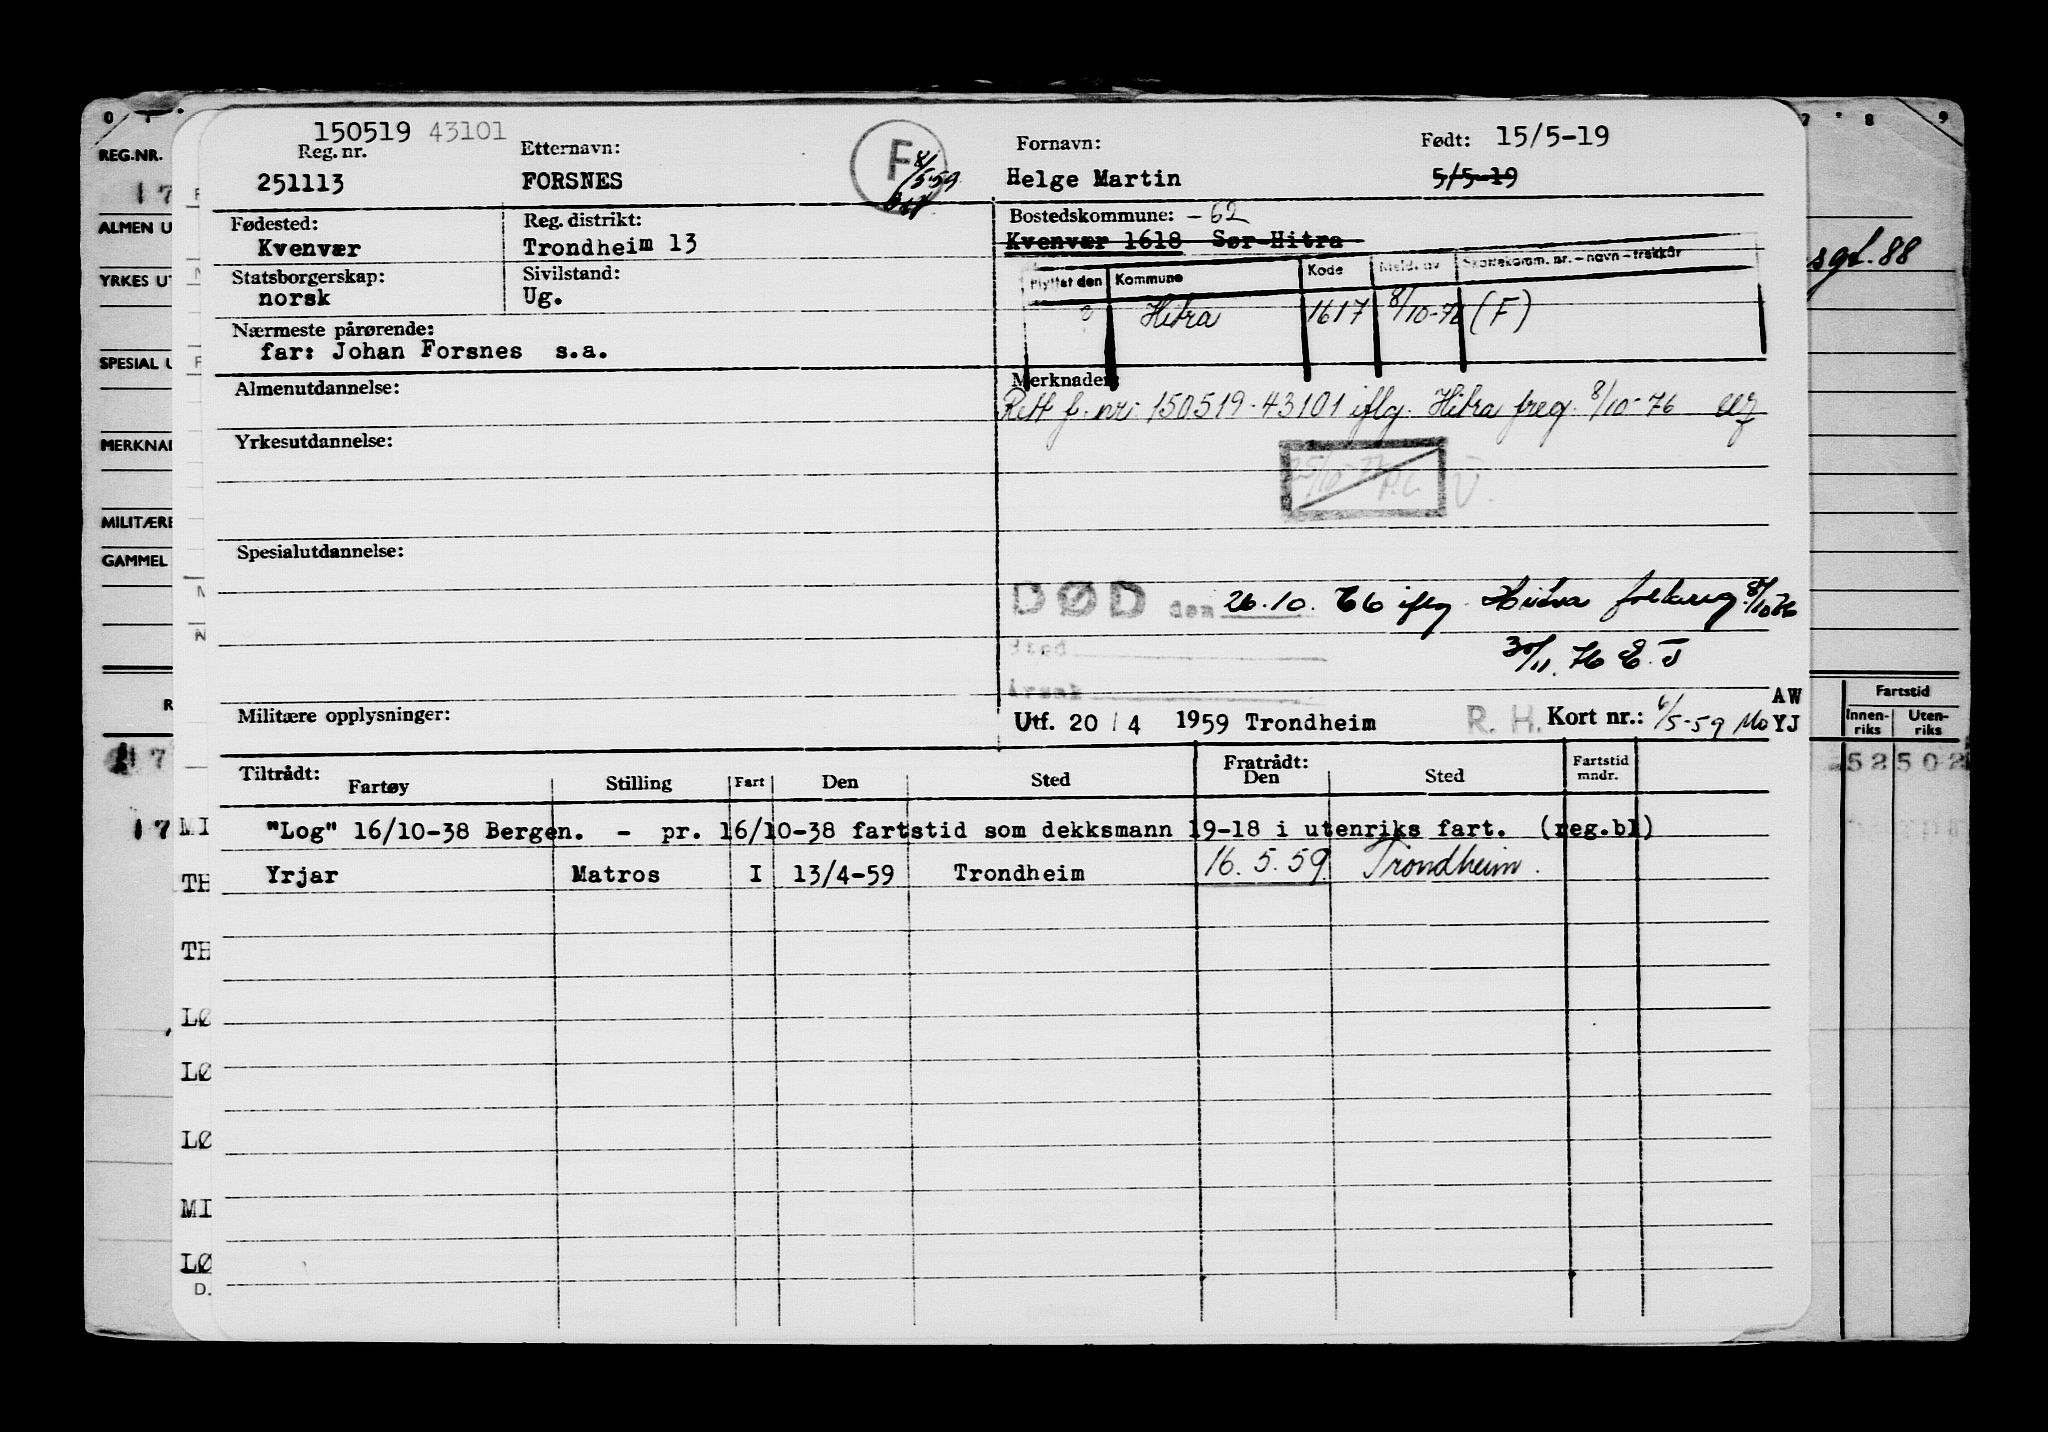 150519 43101
Reg. nr.
251113
Etternavn:
FORSNES
F
8/5 59
Fornavn:
Helge Martin
Født: 15/5-19
5/5-19
Fødested:
Kvenvær
Reg. distrikt:
Trondheim 13
Bostedskommune: -62
Kvenvær 1618 Sør-Hitra
Statsborgerskap:
norsk
Sivilstand:
Ug.
Flyttet den Kommune Kode Meld. av Skattekomm. nr. - navn - trekkår
Hitra 1617 8/10-76 (F)
Nærmeste pårørende:
far: Johan Forsnes s.a.
Almenutdannelse:
Merknader:
Rett f. nr: 150519-43101 iflg. Hitra freg. 8/10-76
Yrkesutdannelse:
25/10-77 P.C. V.
Spesialutdannelse:
DØD den 26.10. 66 iflg. Hitra folkereg. 8/10 76
Sted
30/11. 76 E. J
Årsak
Militære opplysninger:
Utf. 20 / 4 1959 Trondheim
R. H. Kort nr.: 6/5-59 Mo
AW
YJ
Tiltrådt:
Fartøy Stilling Fart Den Sted
Fratrådt:
Den Sted
Fartstid
mndr.
"Log" 16/10-38 Bergen. - pr. 16/10-38 fartstid som dekksmann 19-18 i utenriks fart. (reg.bl)
Yrjar Matros I 13/4-59 Trondheim 16.5.59. Trondheim.
REG.NR.
17
ALMEN U
YRKES UT
SPESIAL U
MERKNAD
MILITÆRE
GAMMEL
R
17
17
MI
TH
TH
LØ
LØ
LØ
MI
LØ
D.
8 9
sgt. 88
Fartstid
Innen-
riks
Uten-
riks
52 502